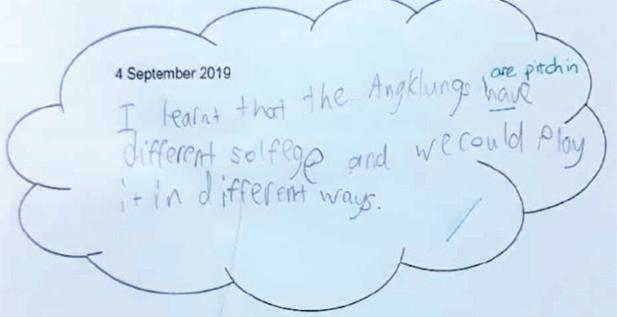 4 September 2019
are pitch in
I learnt that the Angklungs have
different solfege and we could play
it in different ways.